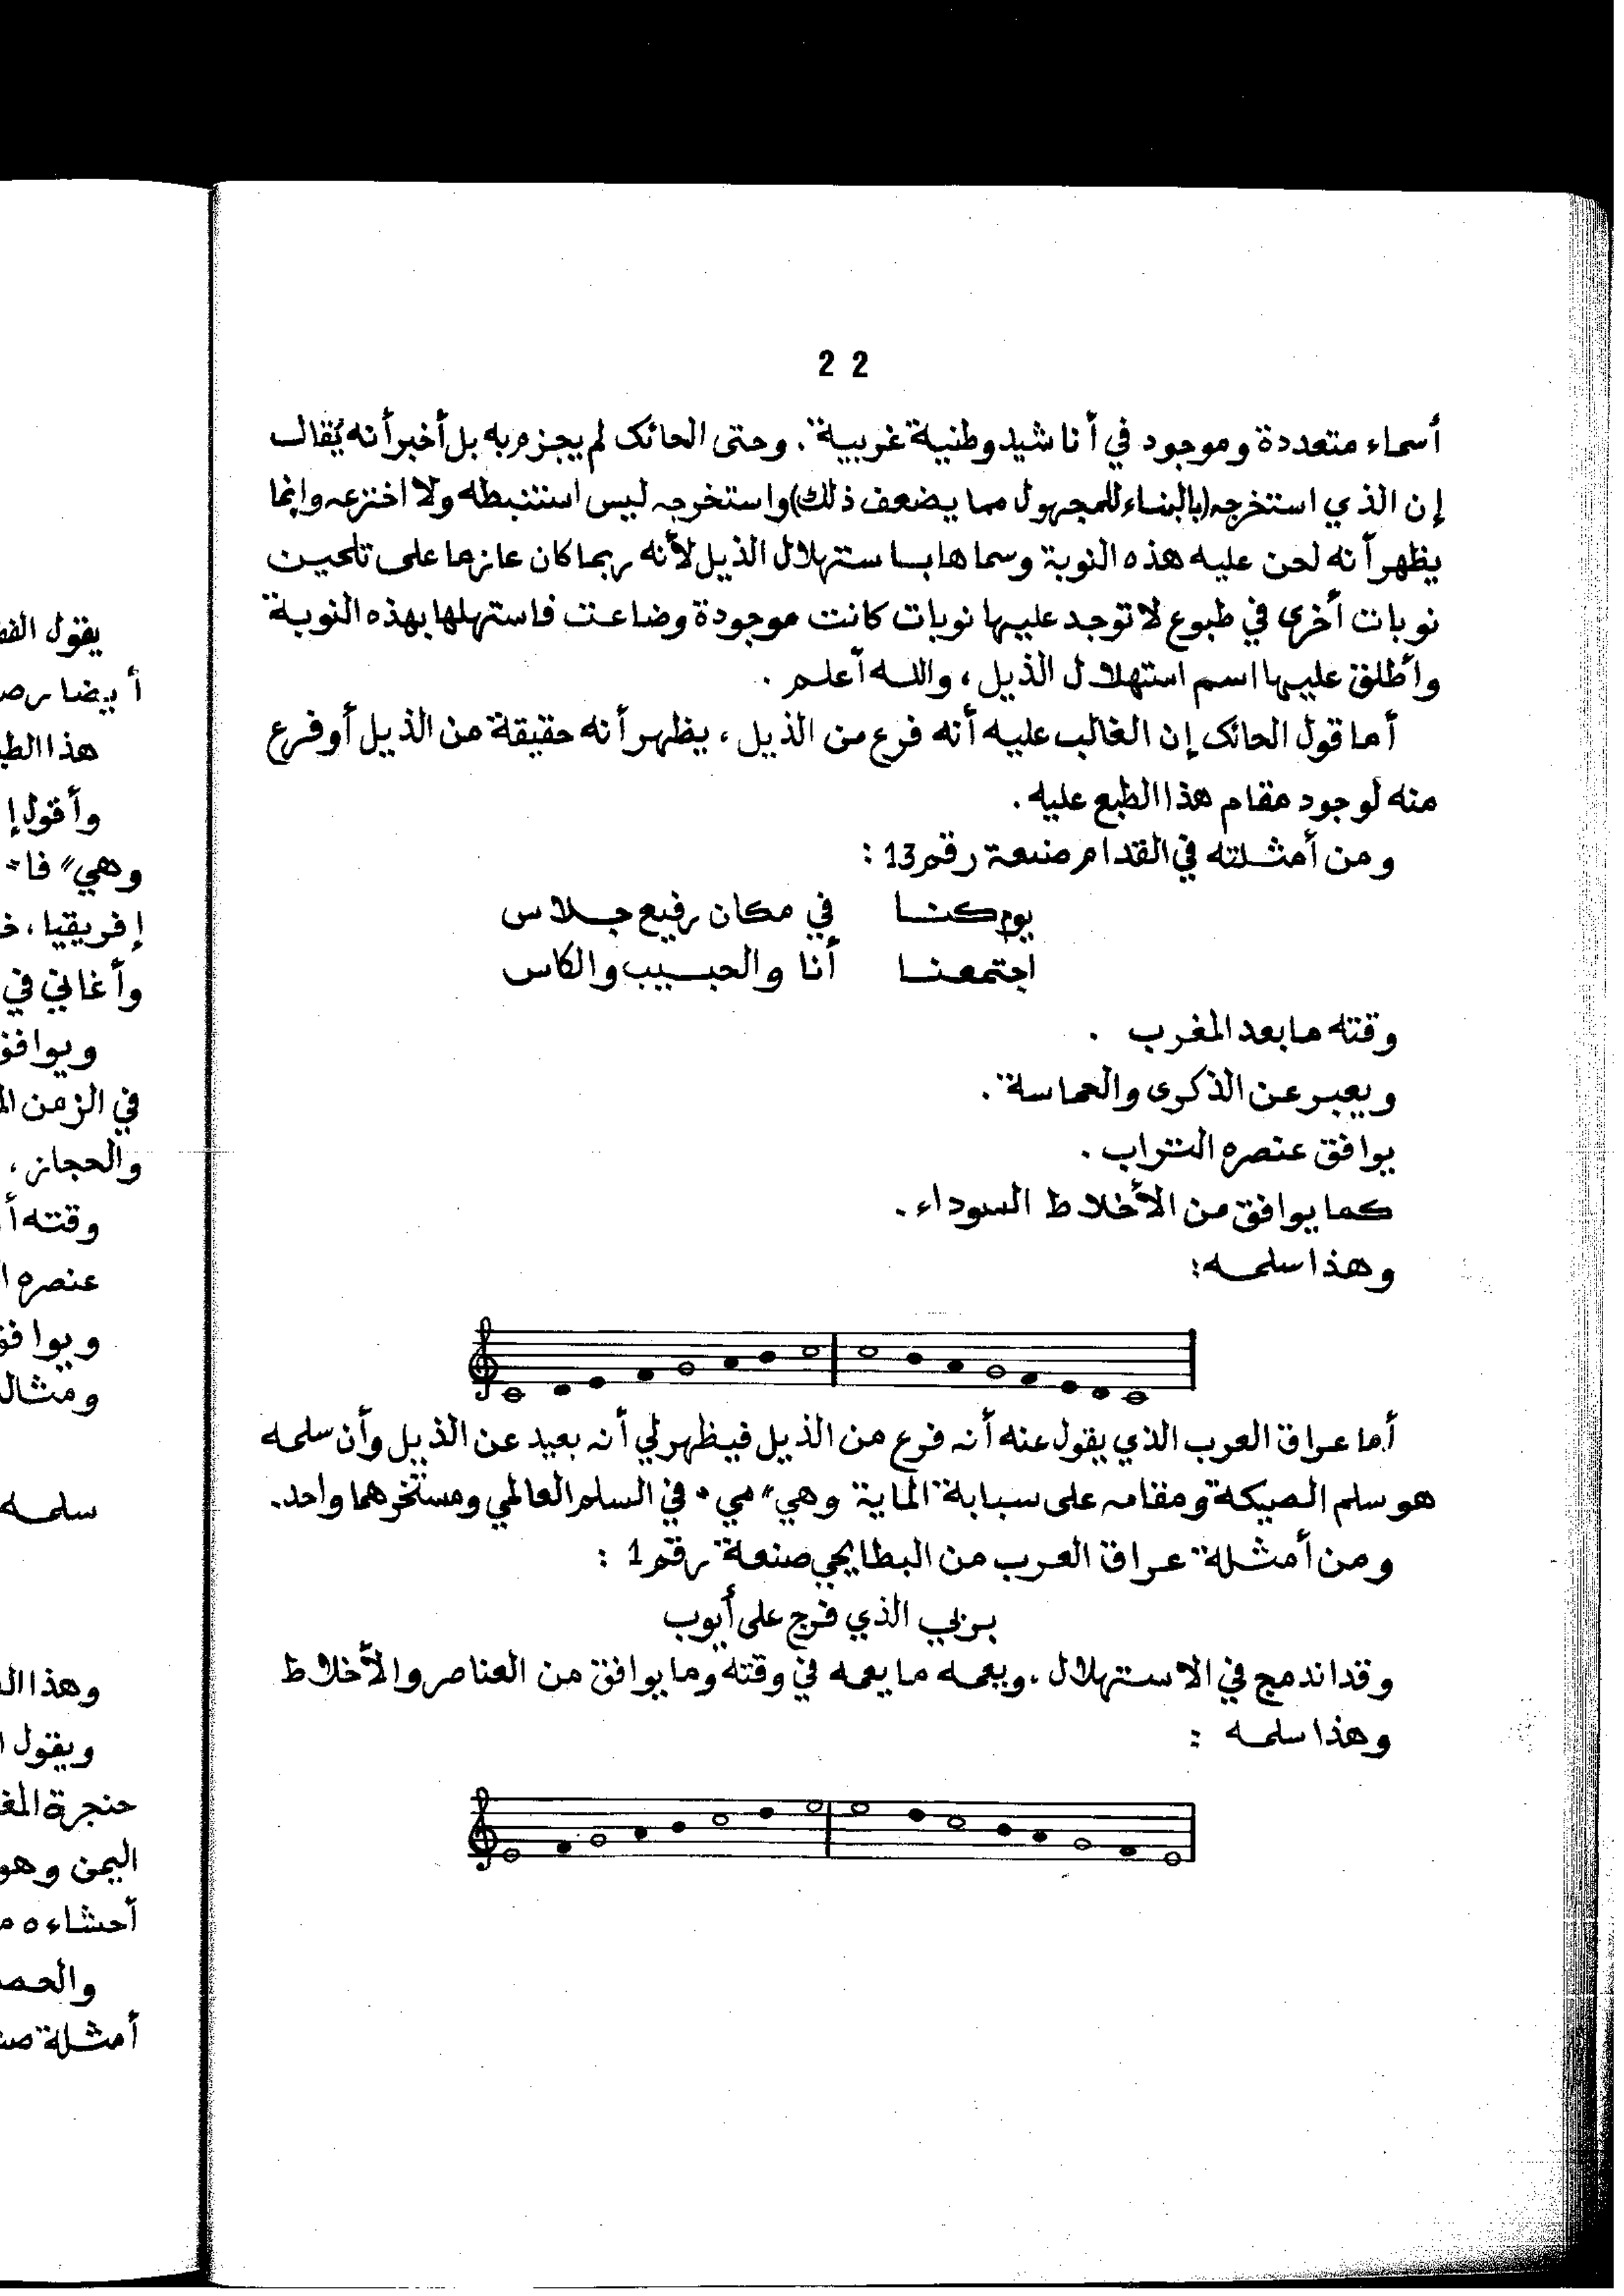 22
أسماء متعددة وموجود في أناشيد وطنية غربية. وحتى الحائك لم يجزم به بل أخبر أنه يُقال
إن الذي استخرجه (بالبناء للمجهول مما يضعف ذلك) واستخرجه ليس استنبطه ولا اخترعه وإنما
يظهر أنه لحن عليه هذه النوبة وسماها باستهلال الذيل لأنه ربما كان عازما على تلحين
نوبات أخرى في طبوع لا توجد عليها نوبات كانت موجودة وضاعت فاستهلها بهذه النوبة
وأطلق عليها اسم استهلال الذيل، والله أعلم.
أما قول الحائك إن الغالب عليه أنه فرع من الذيل، يظهر أنه حقيقة من الذيل أو فرع
منه لوجود مقام هذا الطبع عليه.
ومن أمثلته في القدام صنعة رقم 13 :
يوم كنا في مكان رفيع جلاس
اجتمعنا أنا والحبيب والكاس
وقته ما بعد المغرب .
ويعبر عن الذكرى والحماسة.
يوافق عنصره التراب .
كما يوافق من الأخلاط السوداء.
وهذا سلمه:
أما عراق العرب الذي يقول عنه أنه فرع من الذيل فيظهر لي أنه بعيد عن الذيل وأن سلمه
هو سلم الصيكة ومقامه على سبابة الماية وهي "مي" في السلم العالمي ومستخرهما واحد.
ومن أمثلة عراق العرب من البطايحي صنعة رقم 1 :
بربي الذي فرج على أيوب
وقد اندمج في الاستهلال، ويعمه ما يعمه في وقته وما يوافق من العناصر والأخلاط
وهذا سلمه :
يقول
أيضا
هذا
وأقول
وهي "فا"
إفريقيا،
وأغاني في
ويوافق
في الزمن
والحجاز،
وقته
عنصره
ومثال
سلمه
وهذا
ويقول
حنجرة
اليمن وهو
أحشاءه
أمثلة